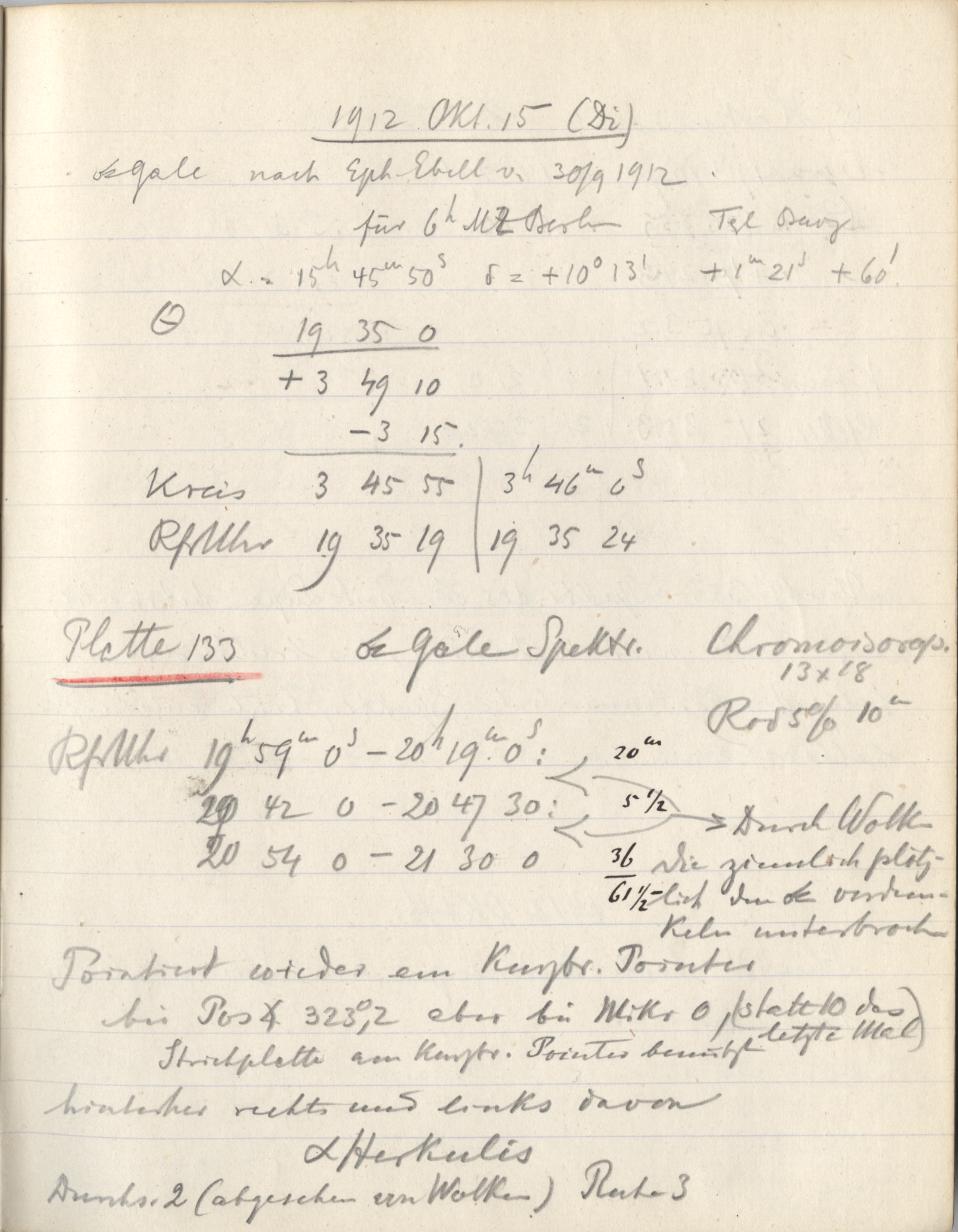 1912 Okt. 15 (Di)
☄ Gale nach Eph. Ebell v. 30/9 1912.
für 6ʰ MZ Berlin Tgl Bewg
α = 15ʰ 45ᵐ 50ˢ δ = +10° 13' +1ᵐ 21ˢ +60'
Θ 19 35 0
+3 49 10
−3 15.
Kreis 3 45 55 | 3ʰ 46ᵐ 0ˢ
RfrUhr 19 35 19 | 19 35 24
Platte 133 ☄ Gale Spektr. Chromoisorap.
13 x 18
Rod 5% 10ᵐ
RfrUhr 19ʰ 59ᵐ 0ˢ − 20ʰ 19ᵐ 0ˢ: 20ᵐ
20 42 0 − 20 47 30: 5 ½ → Durch Wolken
20 54 0 − 21 30 0 36 die ziemlich plötz-
61 ½ lich den ☄ verdun-
keln unterbrochen
Pointiert wieder am Kurzbr. Pointer
bei Pos ∢ 323°,2 aber bei Mikr 0, (statt 10 das
letzte Mal)
Strichplatte am Kurzbr. Pointer benutzt
hinterher rechts und links davon
α Herkulis
Durchs. 2 (abgesehen von Wolken) Ruhe 3